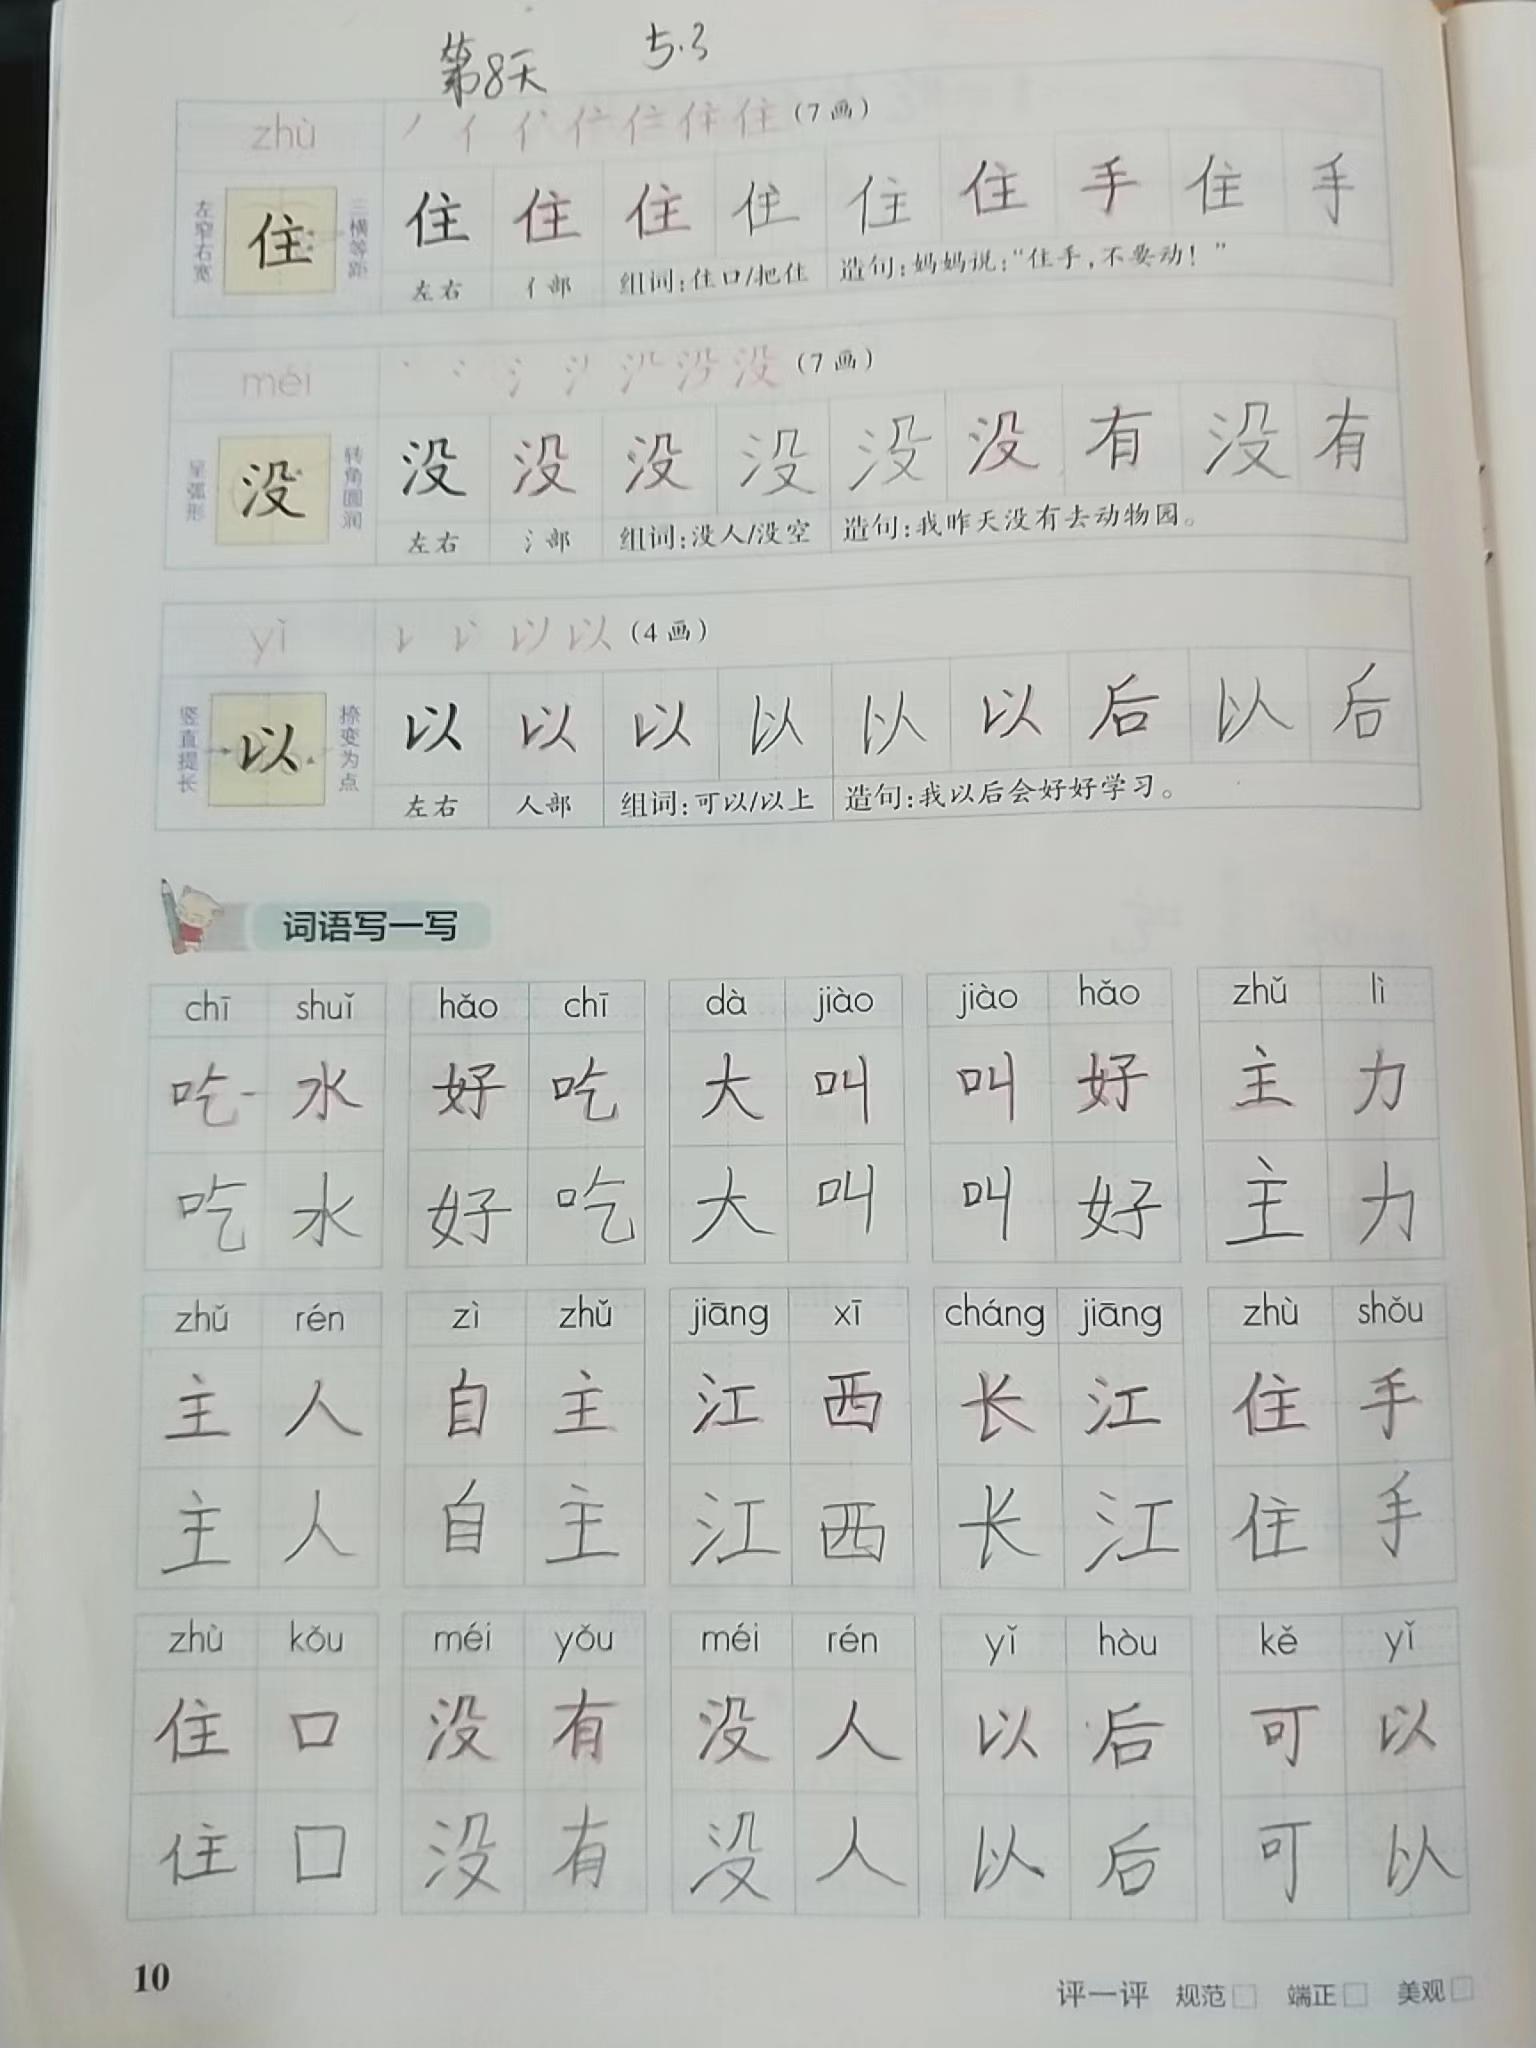 第8天 5.3
zhù 丿 亻 亻 住 住 住 住 (7画)
左窄右宽 住 三横等距 住 住 住 住 住 住 手 住 手
左右 亻部 组词:住口/把住 造句:妈妈说:“住手,不要动!”
méi 没 没 (7画)
呈弧形 没 转角圆润 没 没 没 没 没 没 有 没 有
左右 氵部 组词:没人/没空 造句:我昨天没有去动物园。
yǐ 以 以 (4画)
竖直提长 以 捺变为点 以 以 以 以 以 以 后 以 后
左右 人部 组词:可以/以上 造句:我以后会好好学习。
词语写一写
chī shuǐ hǎo chī dà jiào jiào hǎo zhǔ lì
吃 水 好 吃 大 叫 叫 好 主 力
吃 水 好 吃 大 叫 叫 好 主 力
zhǔ rén zì zhǔ jiāng xī cháng jiāng zhù shǒu
主 人 自 主 江 西 长 江 住 手
主 人 自 主 江 西 长 江 住 手
zhù kǒu méi yǒu méi rén yǐ hòu kě yǐ
住 口 没 有 没 人 以 后 可 以
住 口 没 有 没 人 以 后 可 以
10
评一评 规范□ 端正□ 美观□